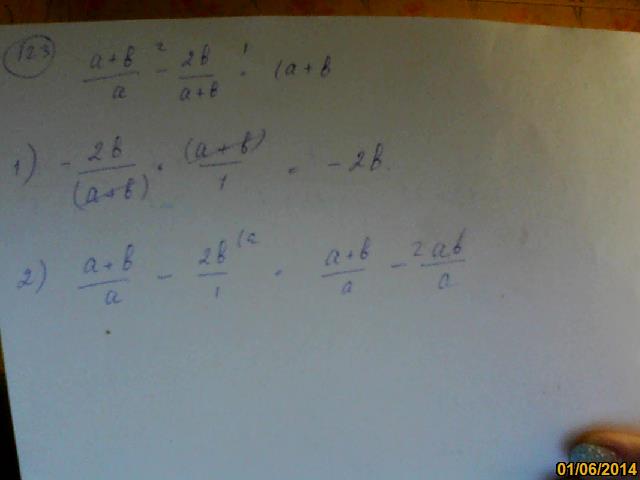 123 a+b/a - 2b/a+b · (a+b
1) - 2b/(a+b) · (a+b)/1 = -2b.
2) a+b/a - 2b/1 (a = a+b/a - 2ab/a
01/06/2014